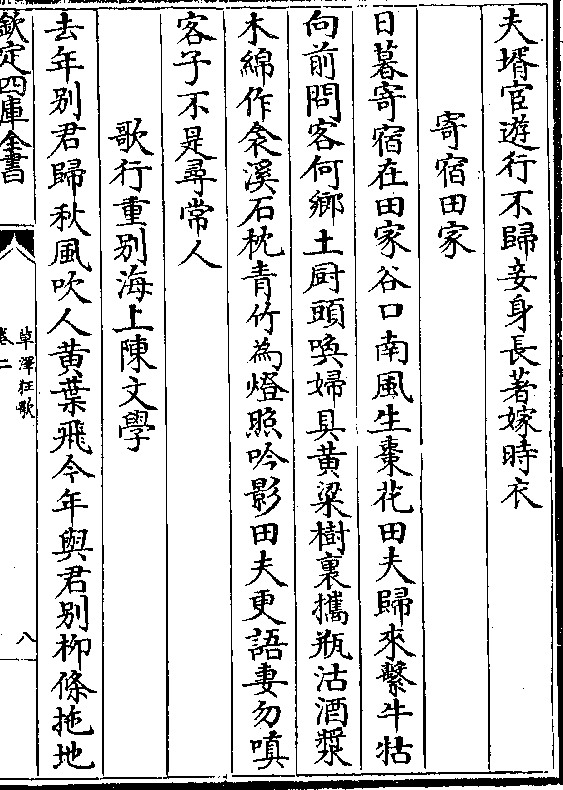 夫壻官遊行不歸妾身長著嫁時衣
寄宿田家
日暮寄宿在田家谷口南風生棗花田夫歸來繫牛牯
向前問客何鄉土厨頭喚婦具黄粱樹裏攜瓶沽酒漿
木綿作衾溪石枕青竹為燈照吟影田夫更語妻勿嗔
客子不是尋常人
歌行重别海上陳文學
去年别君歸秋風吹人黄葉飛今年與君别柳條拖地
欽定四庫全書
草澤狂歌
卷二
八